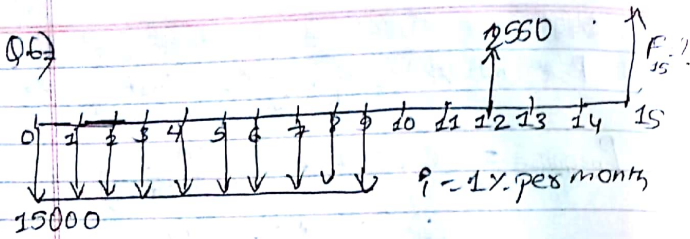 Q6)
2550
F15 ?
0 1 2 3 4 5 6 7 8 9 10 11 12 13 14 15
i = 1% per month
15000